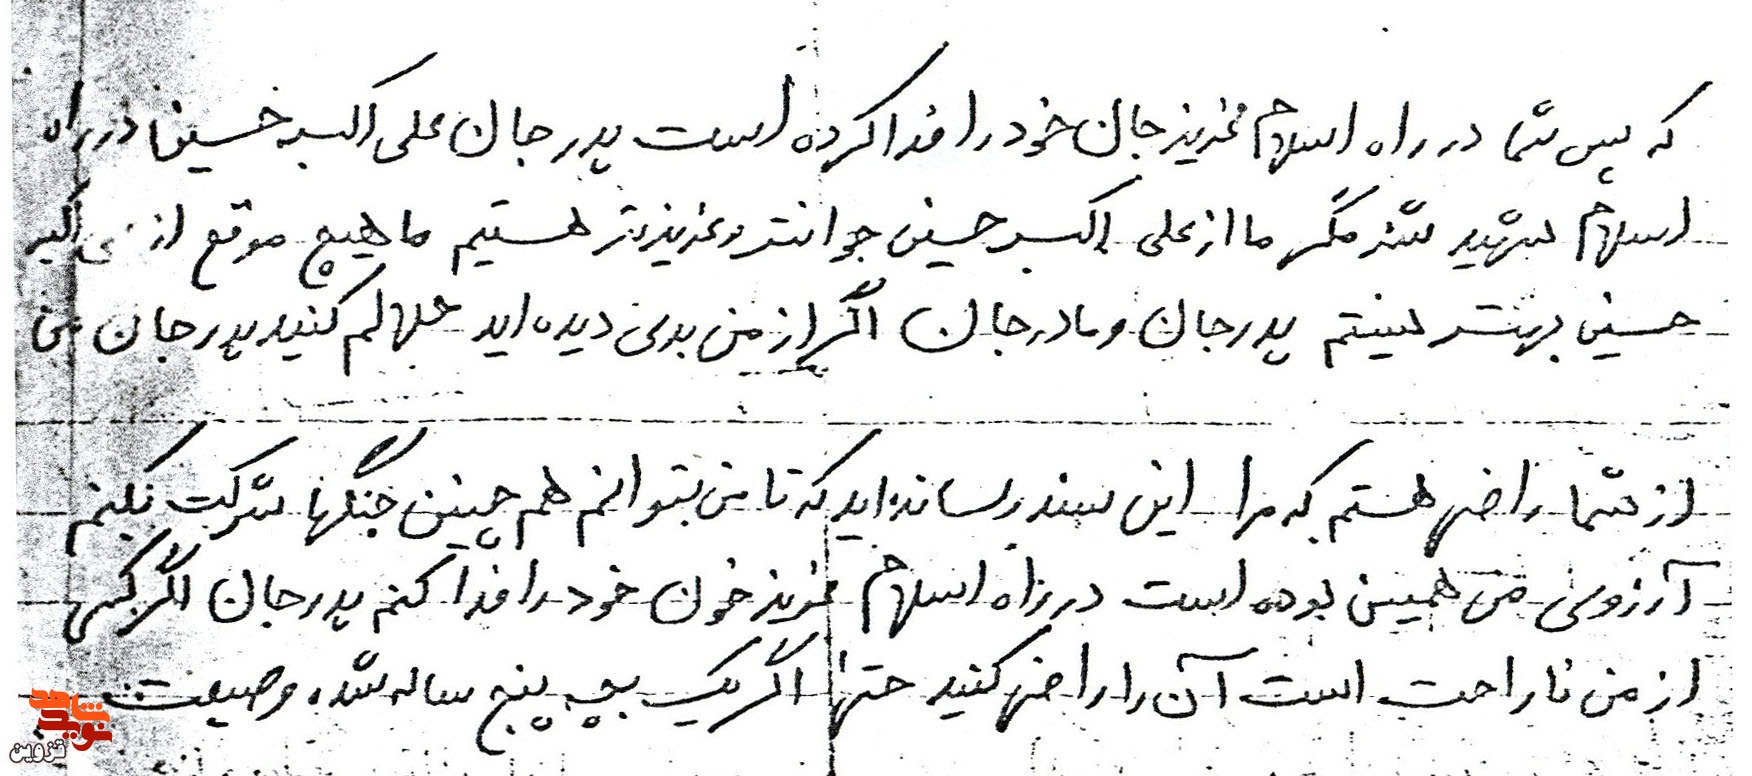 که پس شما در راه اسلام عزیز جان خود را فدا کرده است پدر جان علی اکبر حسین در راه
اسلام شهید شد مگر ما از علی اکبر حسین جوانتر و عزیزتر هستیم ما هیچ موقع از علی اکبر
حسین بهتر نیستم پدر جان و مادر جان اگر از من بدی دیده اید حلالم کنید پدر جان من
از شما راضی هستم که مرا این سند رسانده اید که تا من بتوانم هم چنین جنگها شرکت بکنم
آرزوی من همین بوده است در راه اسلام عزیز خون خود را فدا کنم پدر جان اگر کسی
از من ناراحت است آن را راضی کنید حتی اگر یک بچه پنج ساله شده وصیت
نوید شاهد
قزوین